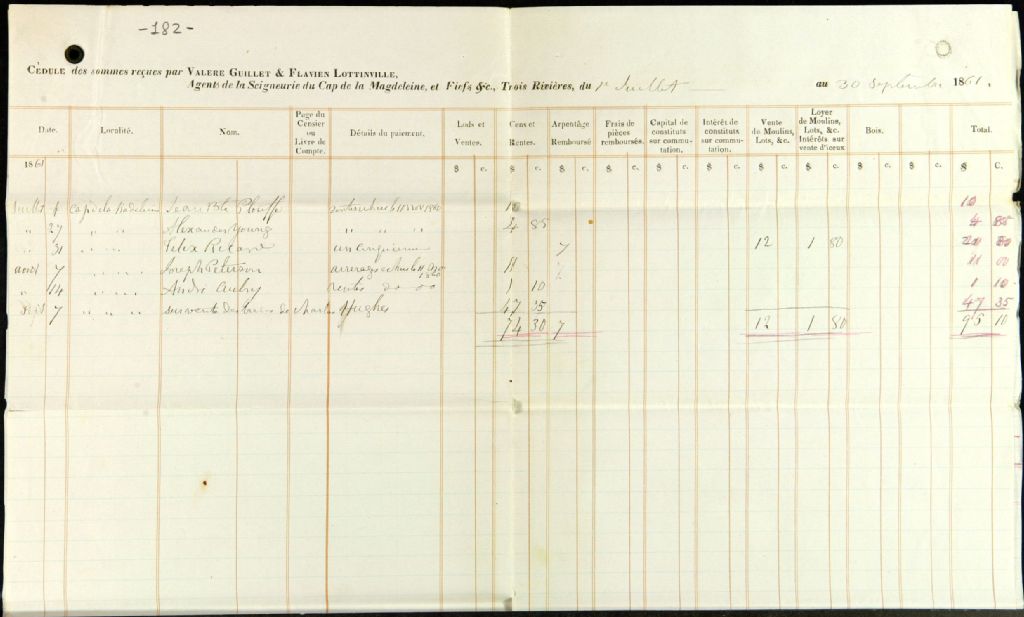 -182-
CÉDULE des sommes reçues par VALERE GUILLET & FLAVIEN LOTTINVILLE,
Agents de la Seigneurie du Cap de la Magdeleine, et Fiefs &c., Trois Rivières, du 1er Juillet au 30 Septembre 1861.
Date. Localité. Nom. Page du Censier ou Livre de Compte. Détails du paiement. Lods et Ventes. Cens et Rentes. Arpentâge Remboursé Frais de pièces remboursés. Capital de constituts sur commutation. Intérêt de constituts sur commutation. Vente de Moulins, Lots, &c. Loyer de Moulins, Lots, &c. Intérêts sur vente d'iceux Bois. Total.
1861 $ c. $ c. $ $ c. $ c. $ c. $ c. $ c. $ c. $ c. $ c. $ C.
Juillet cap de la Madeleine Jean Bte Plouffe 10
" 27 " " Alexander Young " " " 4 85 4 85
" 31 " " Felix 7 12 1 80
aout 7 " " Joseph Peterson arrerages 11 11 00
" 14 " " André Aubry rentes do 00 1 10 1 10
Sept 7 " " " sur vente de de Charles Hughes 47 35 47 35
74 30 7 12 1 80 95 10